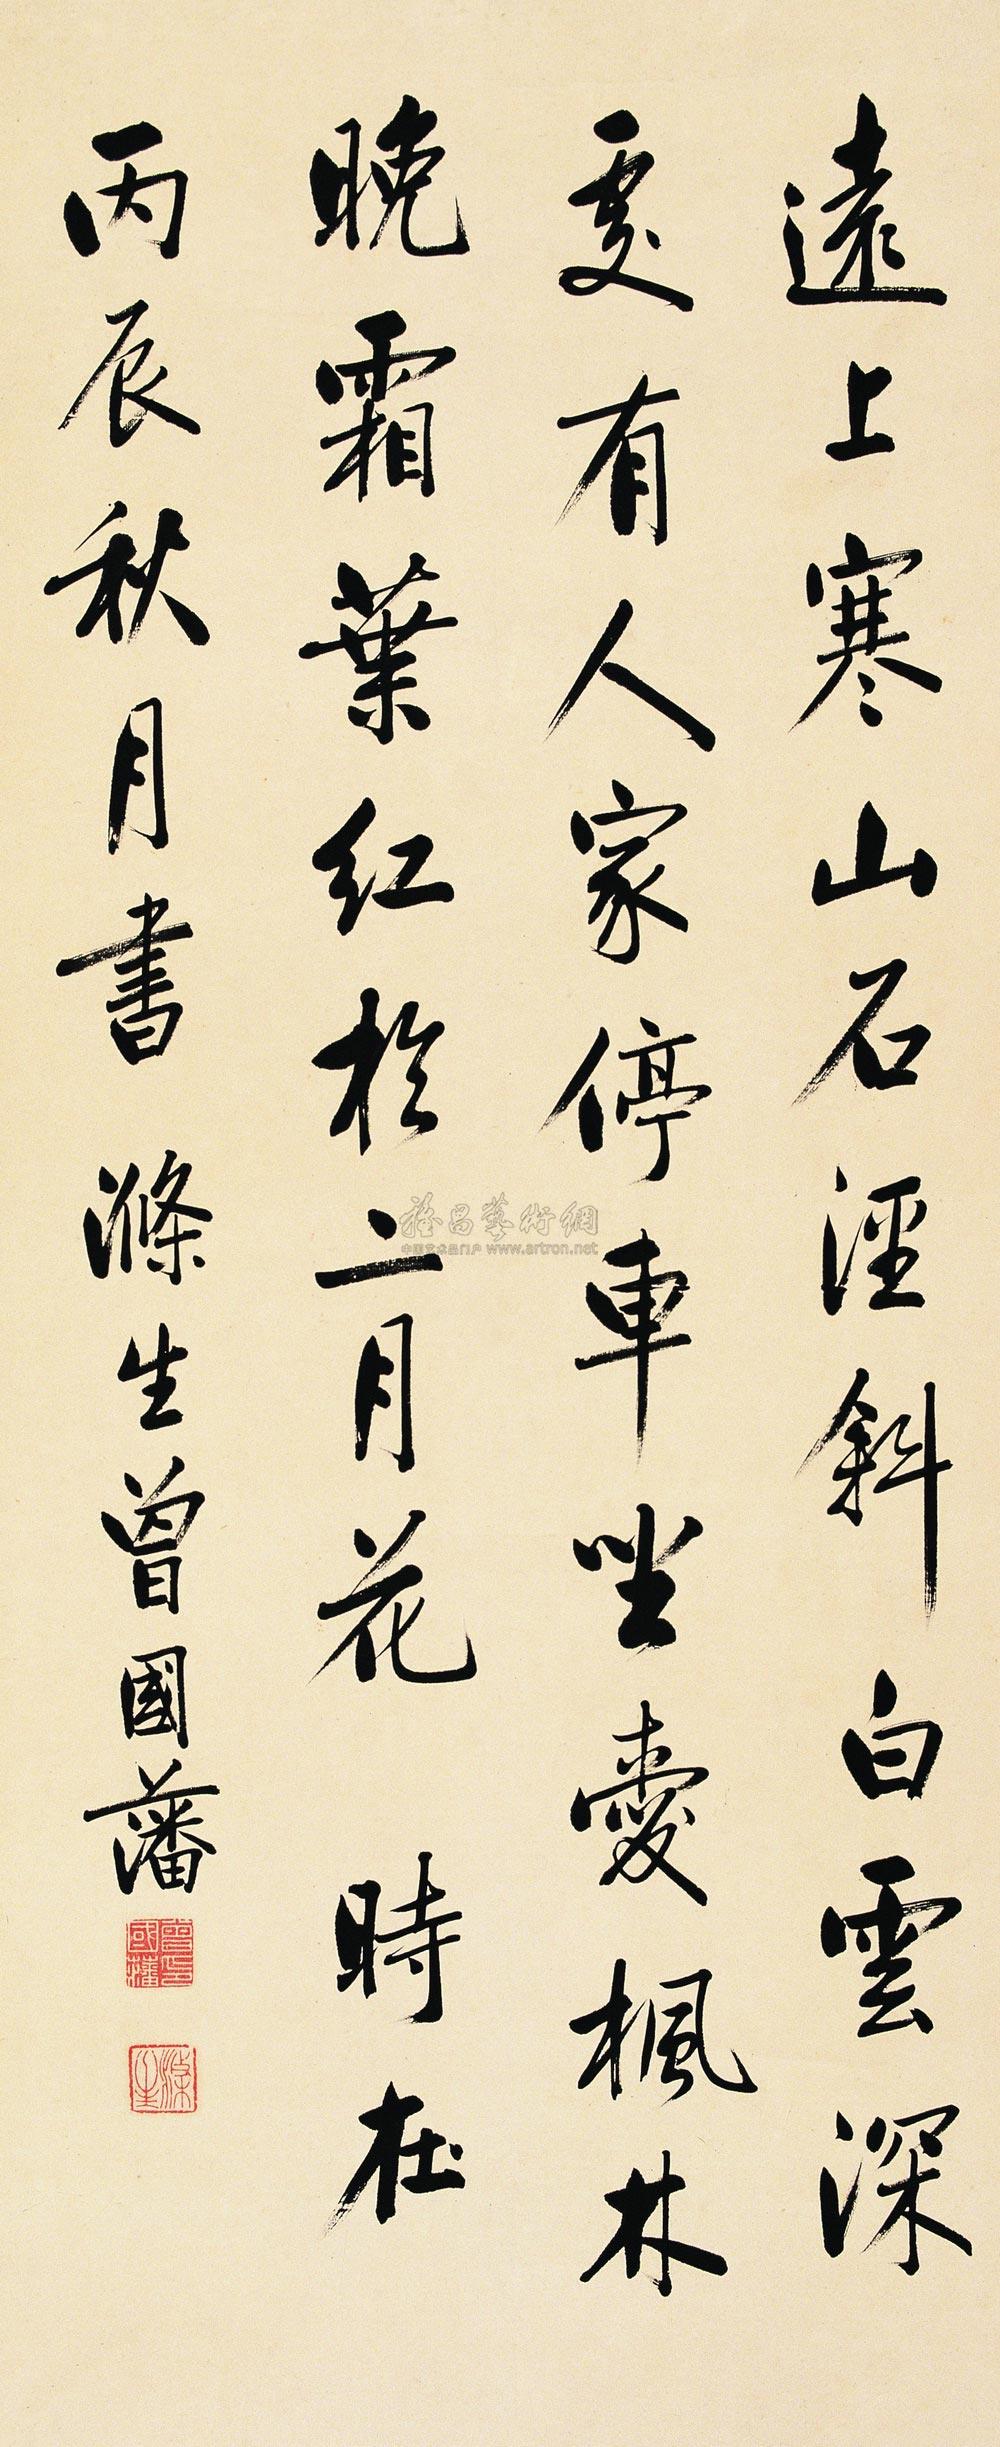 遠上寒山石淫斜白雲深
處有人家停車坐愛楓林
晚霜葉紅於二月花 時在
丙辰秋月書 滌生曾國藩
曾國藩印
滌生
雅昌藝術網
中国艺术品门户 www.artron.net